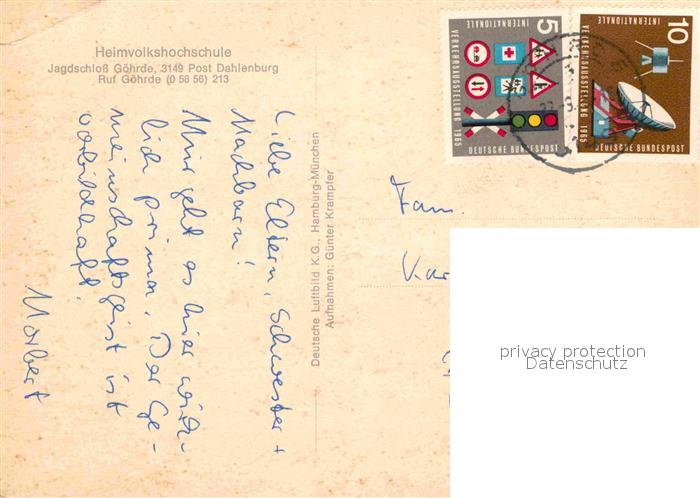 Heimvolkshochschule
Jagdschloß Göhrde, 3149 Post Dahlenburg
Ruf Göhrde (0 58 56) 213
Liebe Eltern, Schwester +
Nachbarn!
Mir geht es hier wirk-
lich prima. Der Ge-
meinschaftsgeist ist
vorbildhaft!
Norbert
Deutsche Luftbild K.G., Hamburg-München
Aufnahmen: Günter Krampfer
5
INTERNATIONALE
VERKEHRSAUSSTELLUNG 1965
DEUTSCHE BUNDESPOST
10
INTERNATIONALE
VERKEHRSAUSSTELLUNG 1965
DEUTSCHE BUNDESPOST
Fam.
Kar
privacy protection
Datenschutz